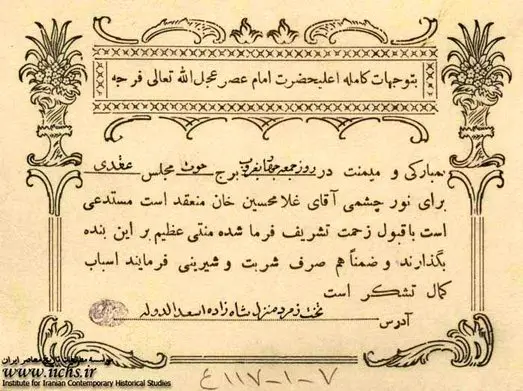 بتوجهات کامله اعلیحضرت امام عصر عجل الله تعالی فرجه
بمبارکی و میمنت در روز جمعه بغروب برج حوت مجلس عقدی
برای نور چشمی آقای غلامحسین خان منعقد است مستدعی
است باقبول زحمت تشریف فرما شده منتی عظیم بر این بنده
بگذارند و ضمناً هم صرف شربت و شیرینی فرمایند اسباب
کمال تشکر است
آدرس منزل شاه زاده اسعدالدوله
موسسه مطالعات تاریخ معاصر ایران
www.iichs.ir
Institute for Iranian Contemporary Historical Studies
۷-۱-۱۱۷ ع